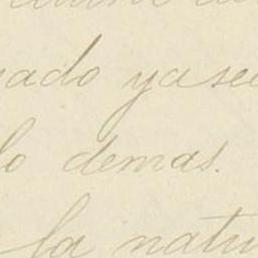 nado ya sea
lo demas.
la natu